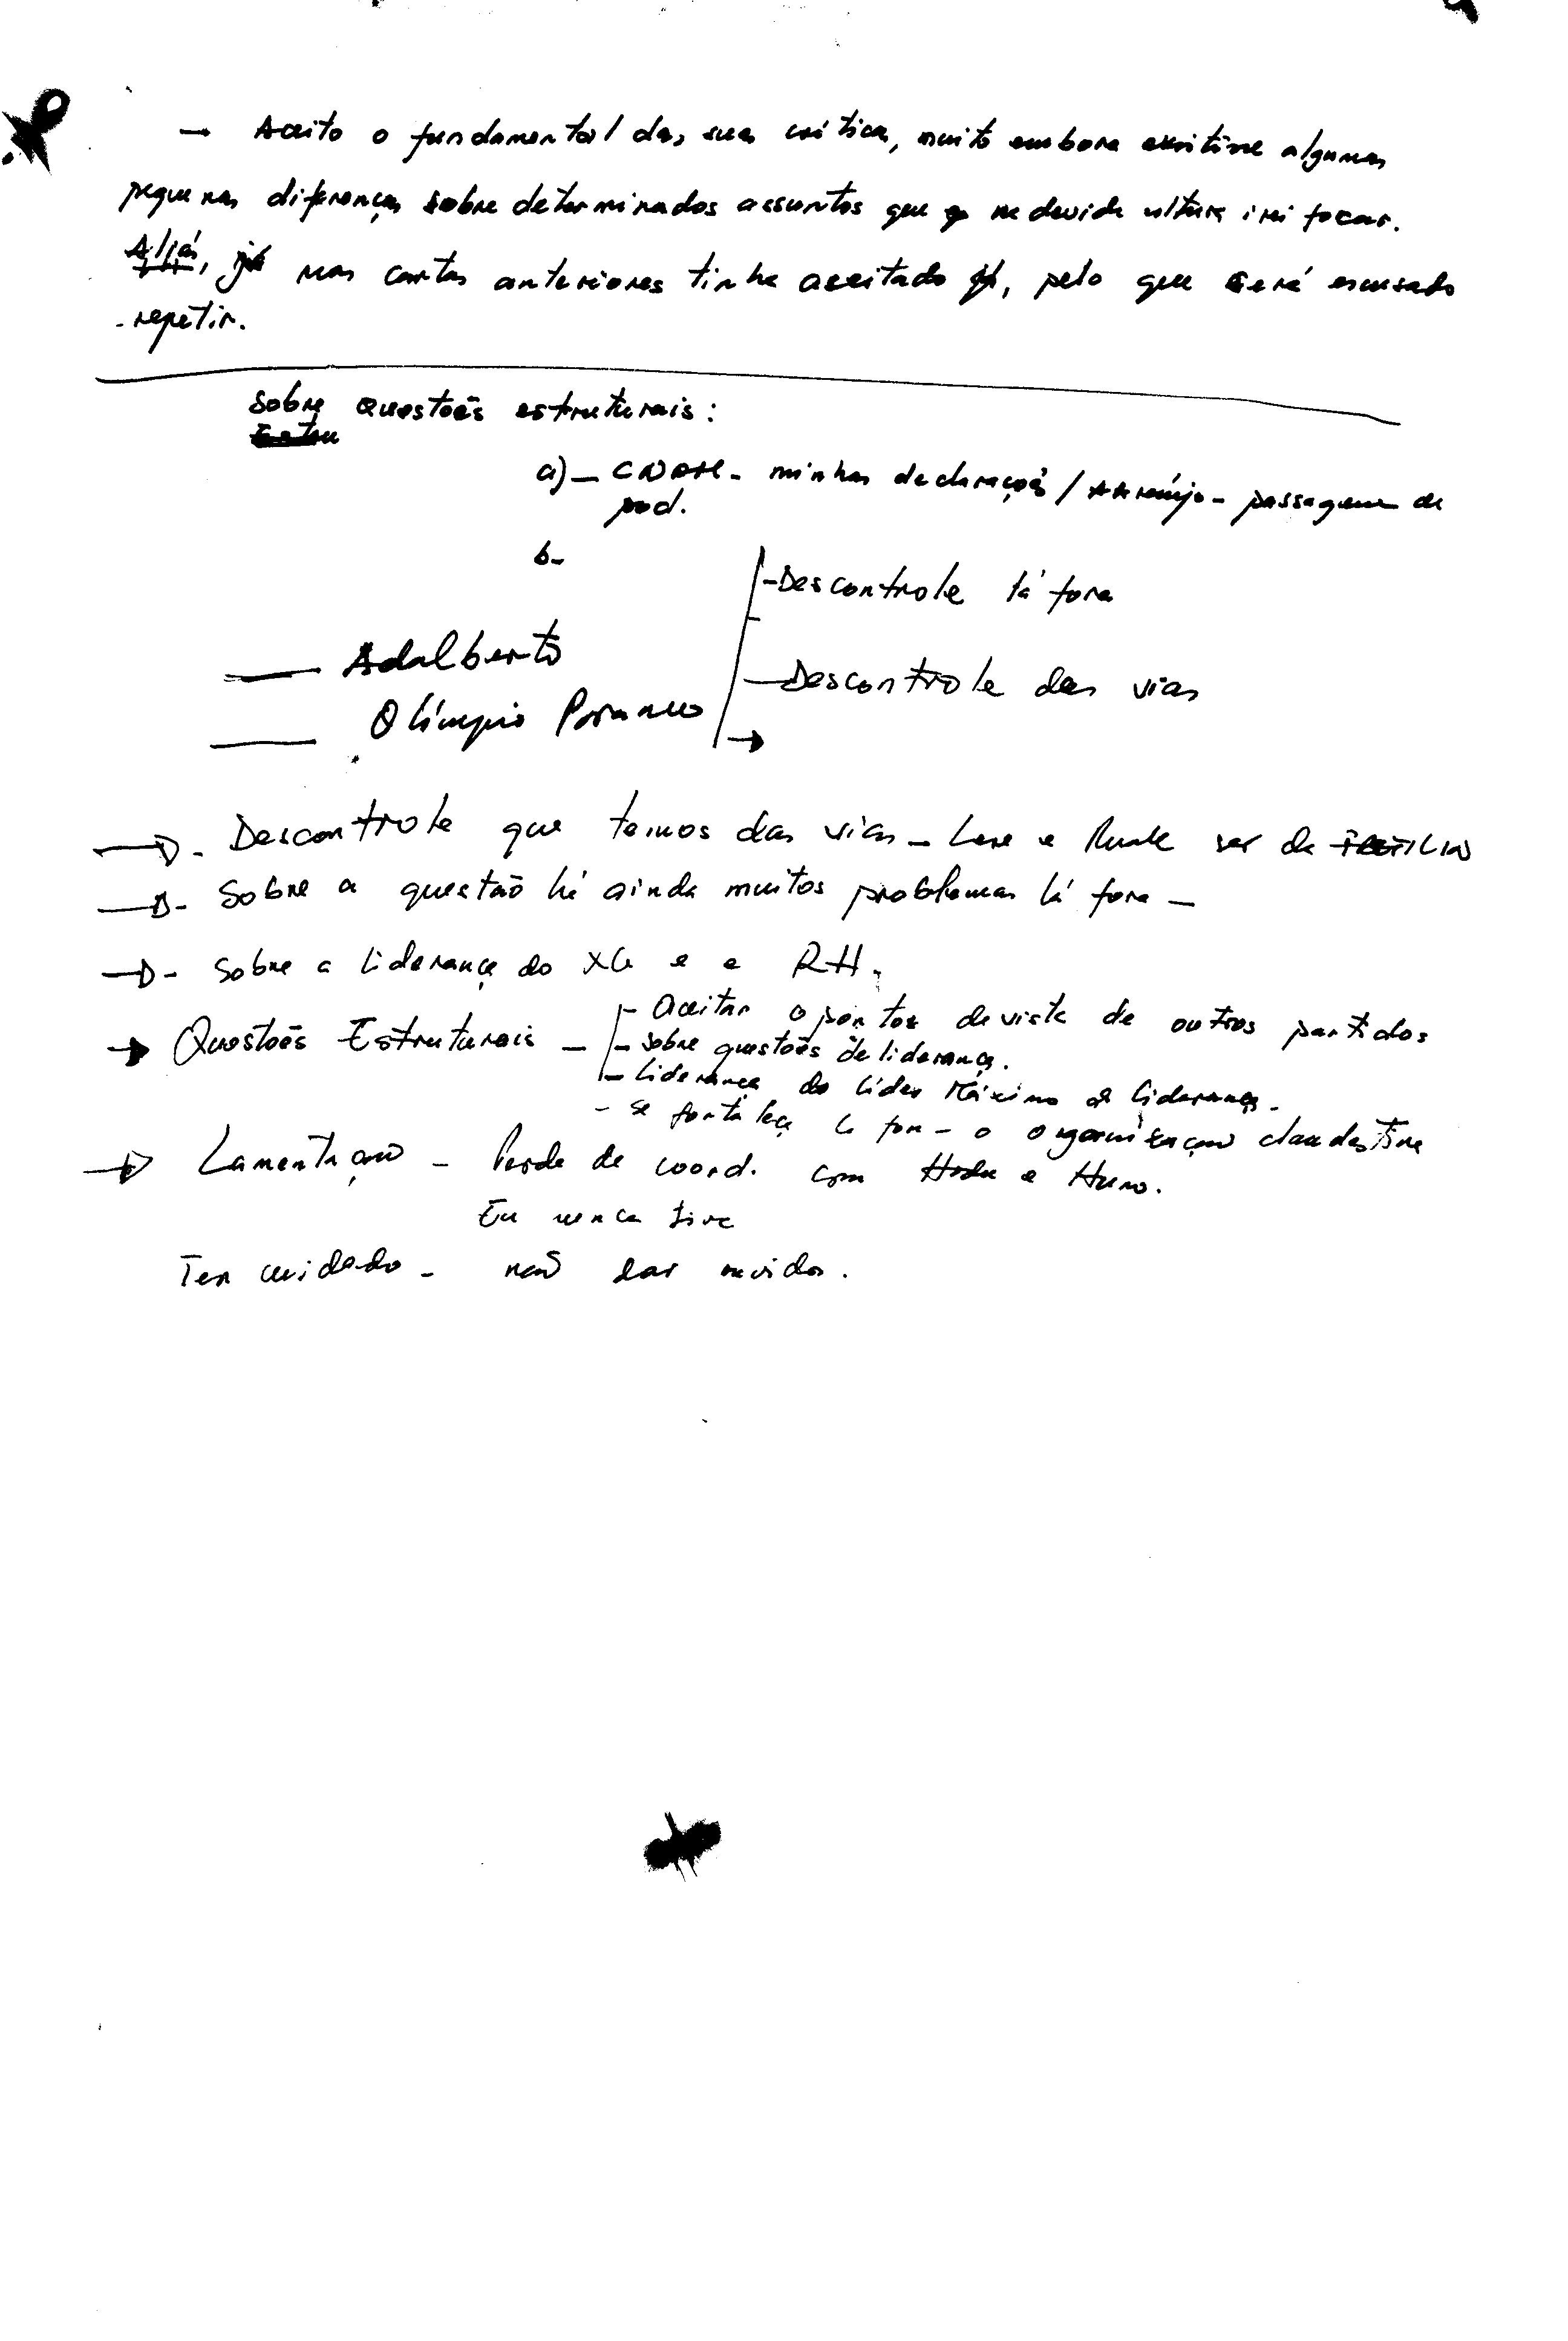 → Aceito o fundamental da, sua crítica, muito embora existisse algumas
pequenas diferenças sobre determinados assuntos que na devida altura irei focar.
Aliás, já nas cartas anteriores tinha aceitado, pelo que será escusado
- repetir.
Sobre Questões estruturais:
a) - minhas declarações / Araújo - passagem de
pod.
b-
- Descontrole lá fora
Adalberto
- Descontrole das vias
Olímpio Branco
→ - Descontrole que temos das vias - e ser de
→ - Sobre a questão há ainda muitos problemas lá fora -
→ - Sobre a liderança do XG e e RH.
- Aceitar o pontos de vista de outros partidos
→ Questões Estruturais -
- sobre questões de liderança.
- Liderança do líder Máximo liderança -
- se fortaleça lá fora - a organização clandestina
→ Lamentação - Perda de coord. com e
Eu nunca tive
Ter cuidado - não dar ouvidos.